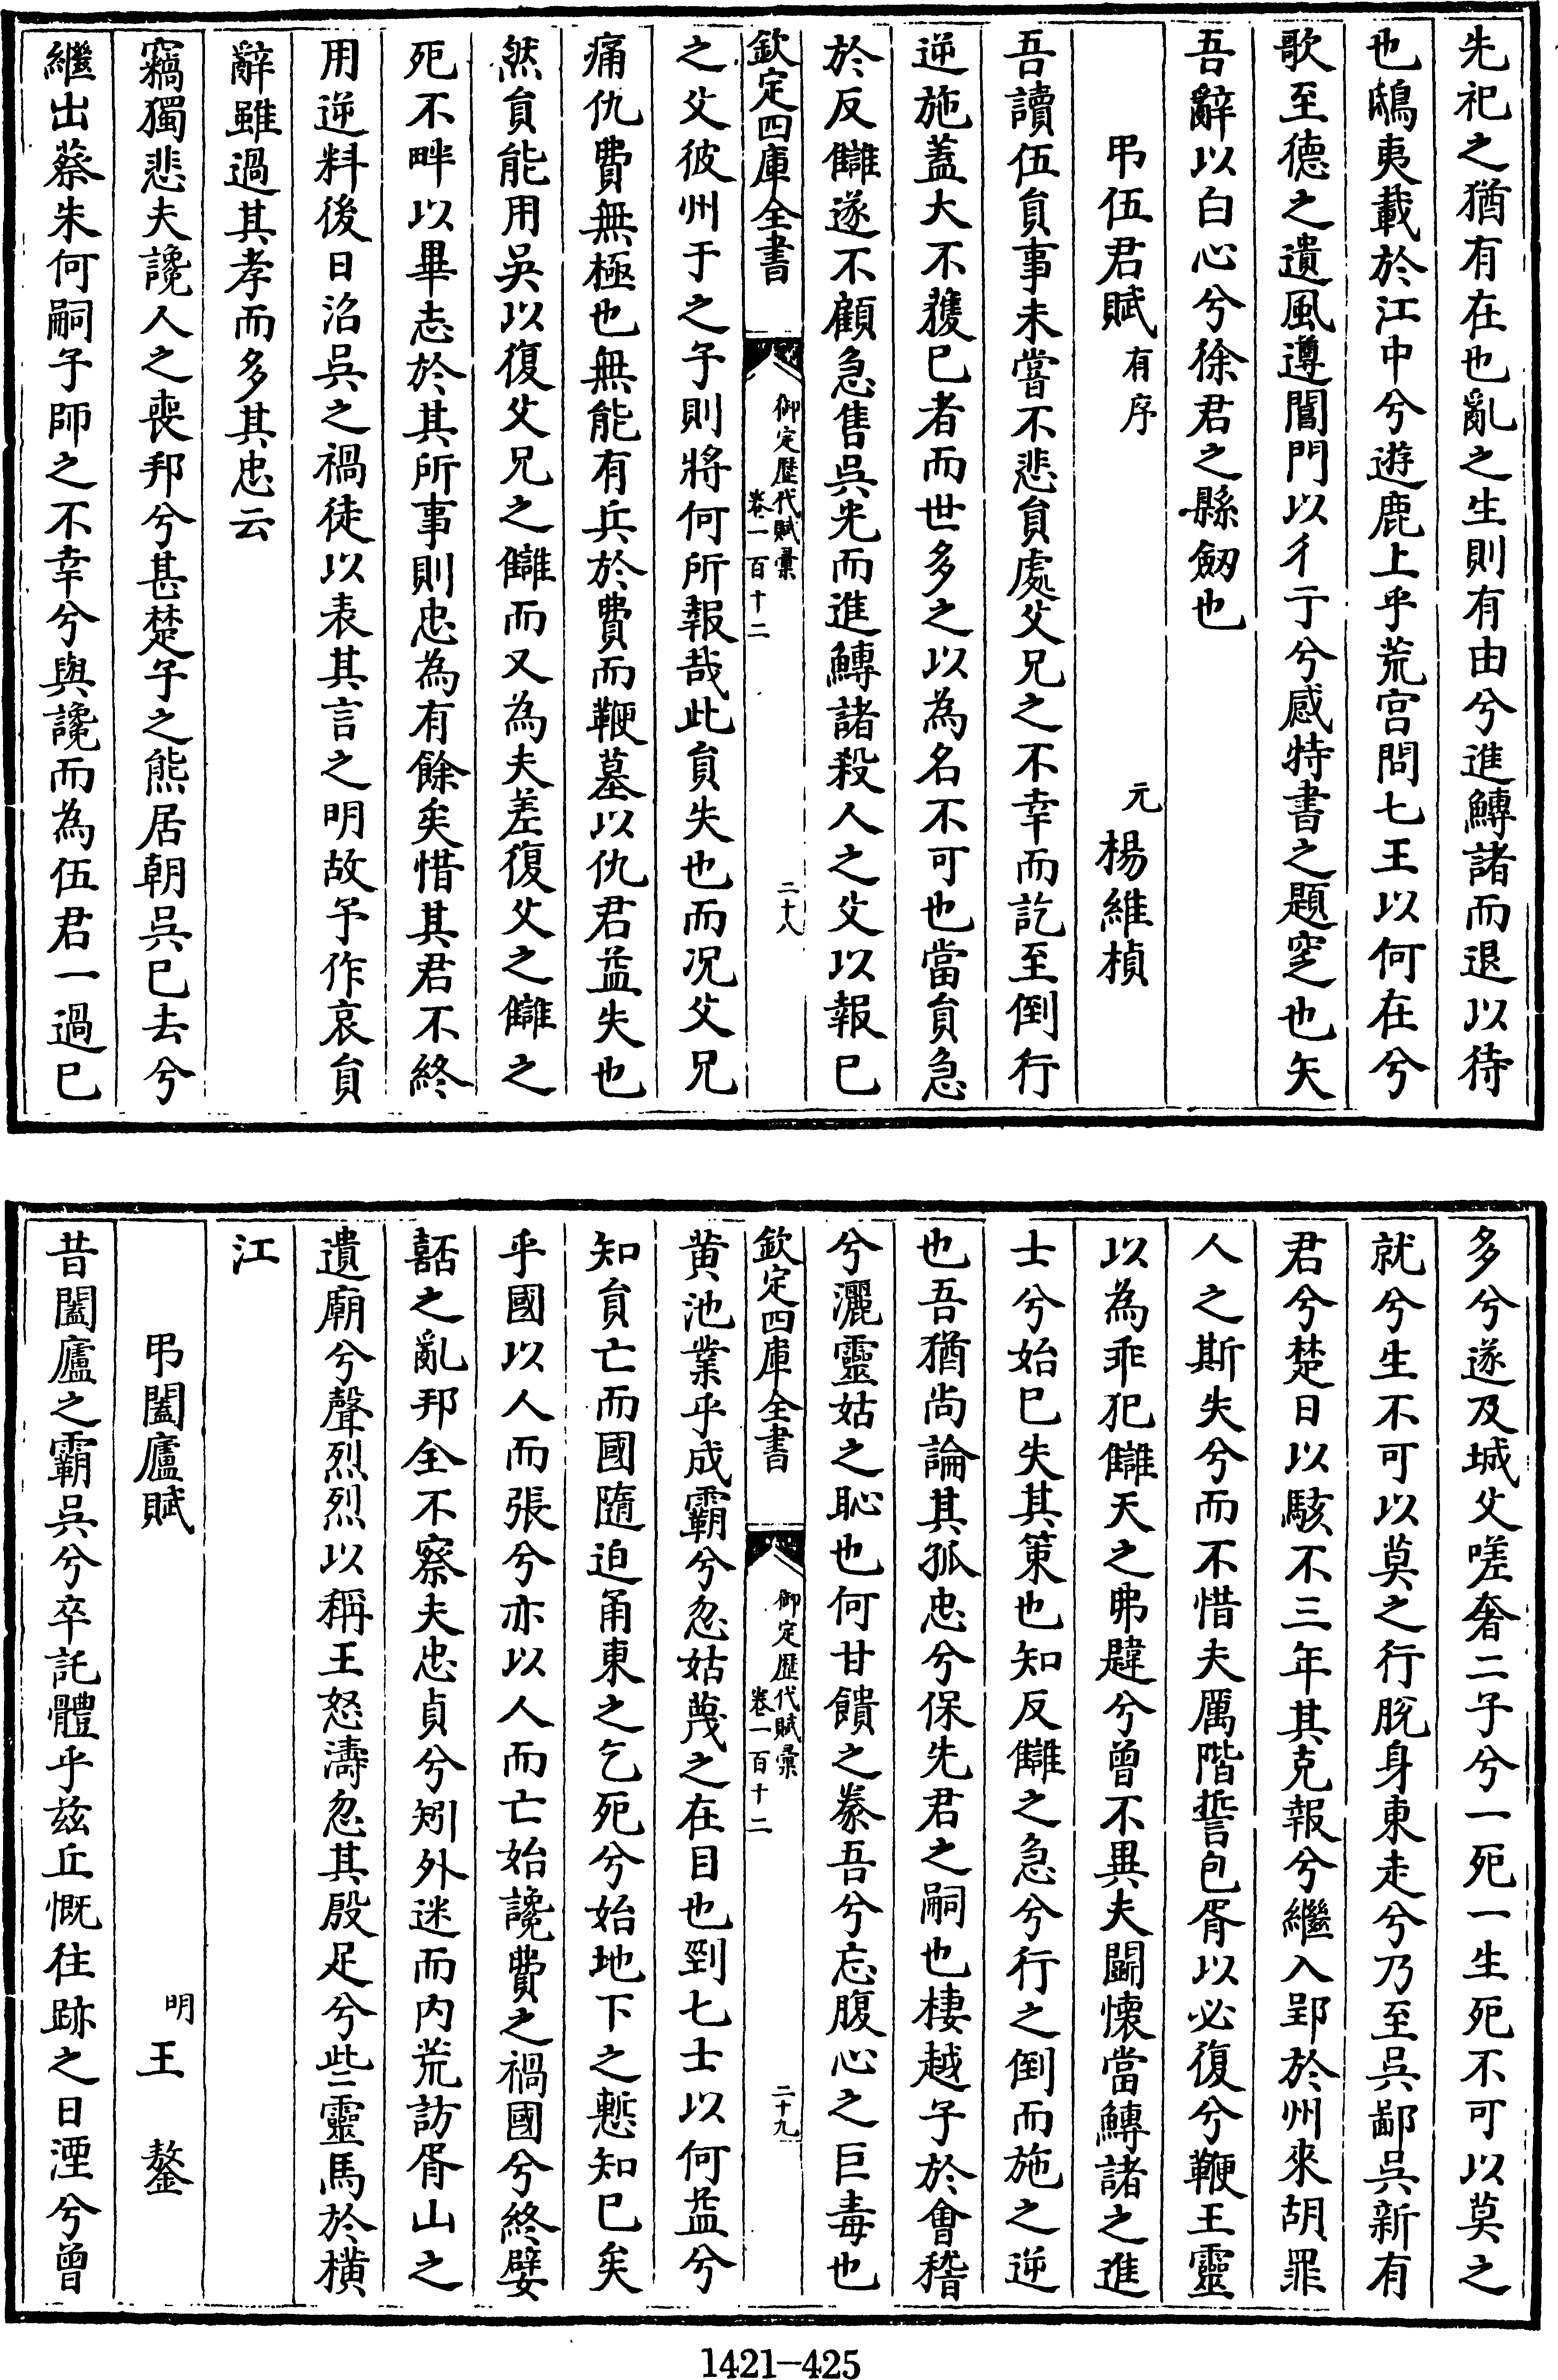 先祀之猶有在也亂之生則有由兮進鱄諸而退以待
也鴟夷載於江中兮遊鹿上乎荒宮問七王以何在兮
歌至德之遺風遵閶門以彳亍兮感特書之題窆也矢
吾辭以白心兮徐君之縣劒也
弔伍君賦有序 元楊維楨
吾讀伍員事未嘗不悲員處父兄之不幸而訖至倒行
逆施蓋大不獲已者而世多之以為名不可也當員急
於反讎遂不顧急售吳光而進鱄諸殺人之父以報已
欽定四庫全書 御定歷代賦彙卷一百十二 二十八
之父彼州于之子則將何所報哉此員失也而况父兄
痛仇費無極也無能有兵於費而鞭墓以仇君益失也
然員能用吳以復父兄之讎而又為夫差復父之讎之
死不畔以畢志於其所事則忠為有餘矣惜其君不終
用逆料後日沼吳之禍徒以表其言之明故予作哀員
辭雖過其孝而多其忠云
竊獨悲夫讒人之喪邦兮甚楚子之熊居朝吳已去兮
繼出蔡朱何嗣子師之不幸兮與讒而為伍君一過已
多兮遂及城父嗟奢二子兮一死一生死不可以莫之
就兮生不可以莫之行脫身東走兮乃至吳鄙吳新有
君兮楚日以駭不三年其克報兮繼入郢於州來胡罪
人之斯失兮而不惜夫厲階誓包胥以必復兮鞭王靈
以為乖犯讎天之弗韙兮曾不異夫鬬懷當鱄諸之進
士兮始已失其策也知反讎之急兮行之倒而施之逆
也吾猶尚論其孤忠兮保先君之嗣也棲越子於㑹稽
兮灑靈姑之恥也何甘饋之豢吾兮忘腹心之巨毒也
欽定四庫全書 御定歷代賦彙卷一百十二 二十九
黄池業乎成霸兮忽姑蔑之在目也剄七士以何益兮
知員亡而國隨迫甬東之乞死兮始地下之慙知已矣
乎國以人而張兮亦以人而亡始讒費之禍國兮終嬖
嚭之亂邦全不察夫忠貞兮矧外迷而内荒訪胥山之
遺廟兮聲烈烈以稱王怒濤忽其殷足兮些靈馬於横
江
弔闔廬賦 明王鏊
昔闔廬之霸吳兮卒託體乎茲丘慨往跡之日湮兮曾
1421—425